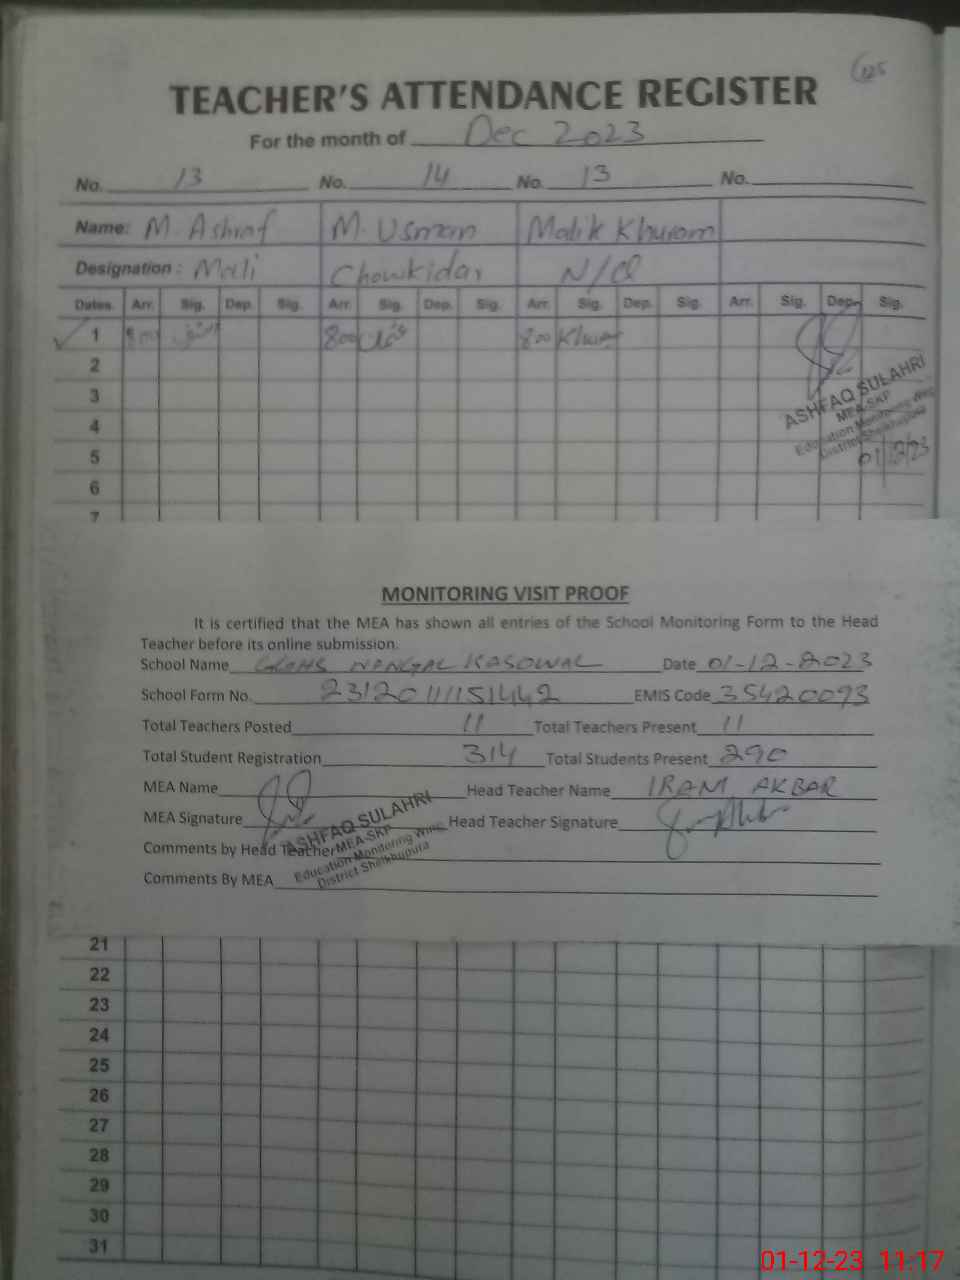 125
TEACHER'S ATTENDANCE REGISTER
For the month of Dec 2023
No. 13 No. 14 No. 13 No.
Name: M. Ashraf M. Usman Malik Khuram
Designation: Mali Chowkidar N/Q
Dates. Arr. Sig. Dep. Sig. Arr. Sig. Dep. Sig. Arr. Sig. Dep. Sig. Arr. Sig. Dep. Sig.
1 800 800 800 Khuram
2
3
4
5
6
7
ASHFAQ SULAHRI
MEA-SKP
Education Monitoring Wing
District Sheikhupura
01/12/23
MONITORING VISIT PROOF
It is certified that the MEA has shown all entries of the School Monitoring Form to the Head
Teacher before its online submission.
School Name GGHS NANGAL KASOWAL Date 01-12-2023
School Form No. 23120111151442 EMIS Code 35420093
Total Teachers Posted 11 Total Teachers Present 11
Total Student Registration 314 Total Students Present 290
MEA Name Head Teacher Name IRAM AKBAR
MEA Signature Head Teacher Signature
Comments by Head Teacher
Comments By MEA
ASHFAQ SULAHRI
MEA-SKP
Education Monitoring Wing
District Sheikhupura
21
22
23
24
25
26
27
28
29
30
31
01-12-23 11:17